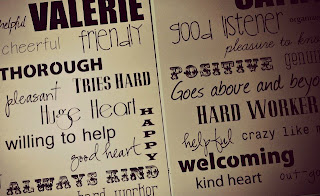 helpful VALERIE
cheerful friendly
THOROUGH
TRIES HARD
pleasant
Huge Heart
willing to help
HAPPY
good heart
ALWAYS KIND
hard worker
good listener
pleasure to
POSITIVE
Goes above and
HARD WORKER
helpful crazy like
welcoming
kind heart